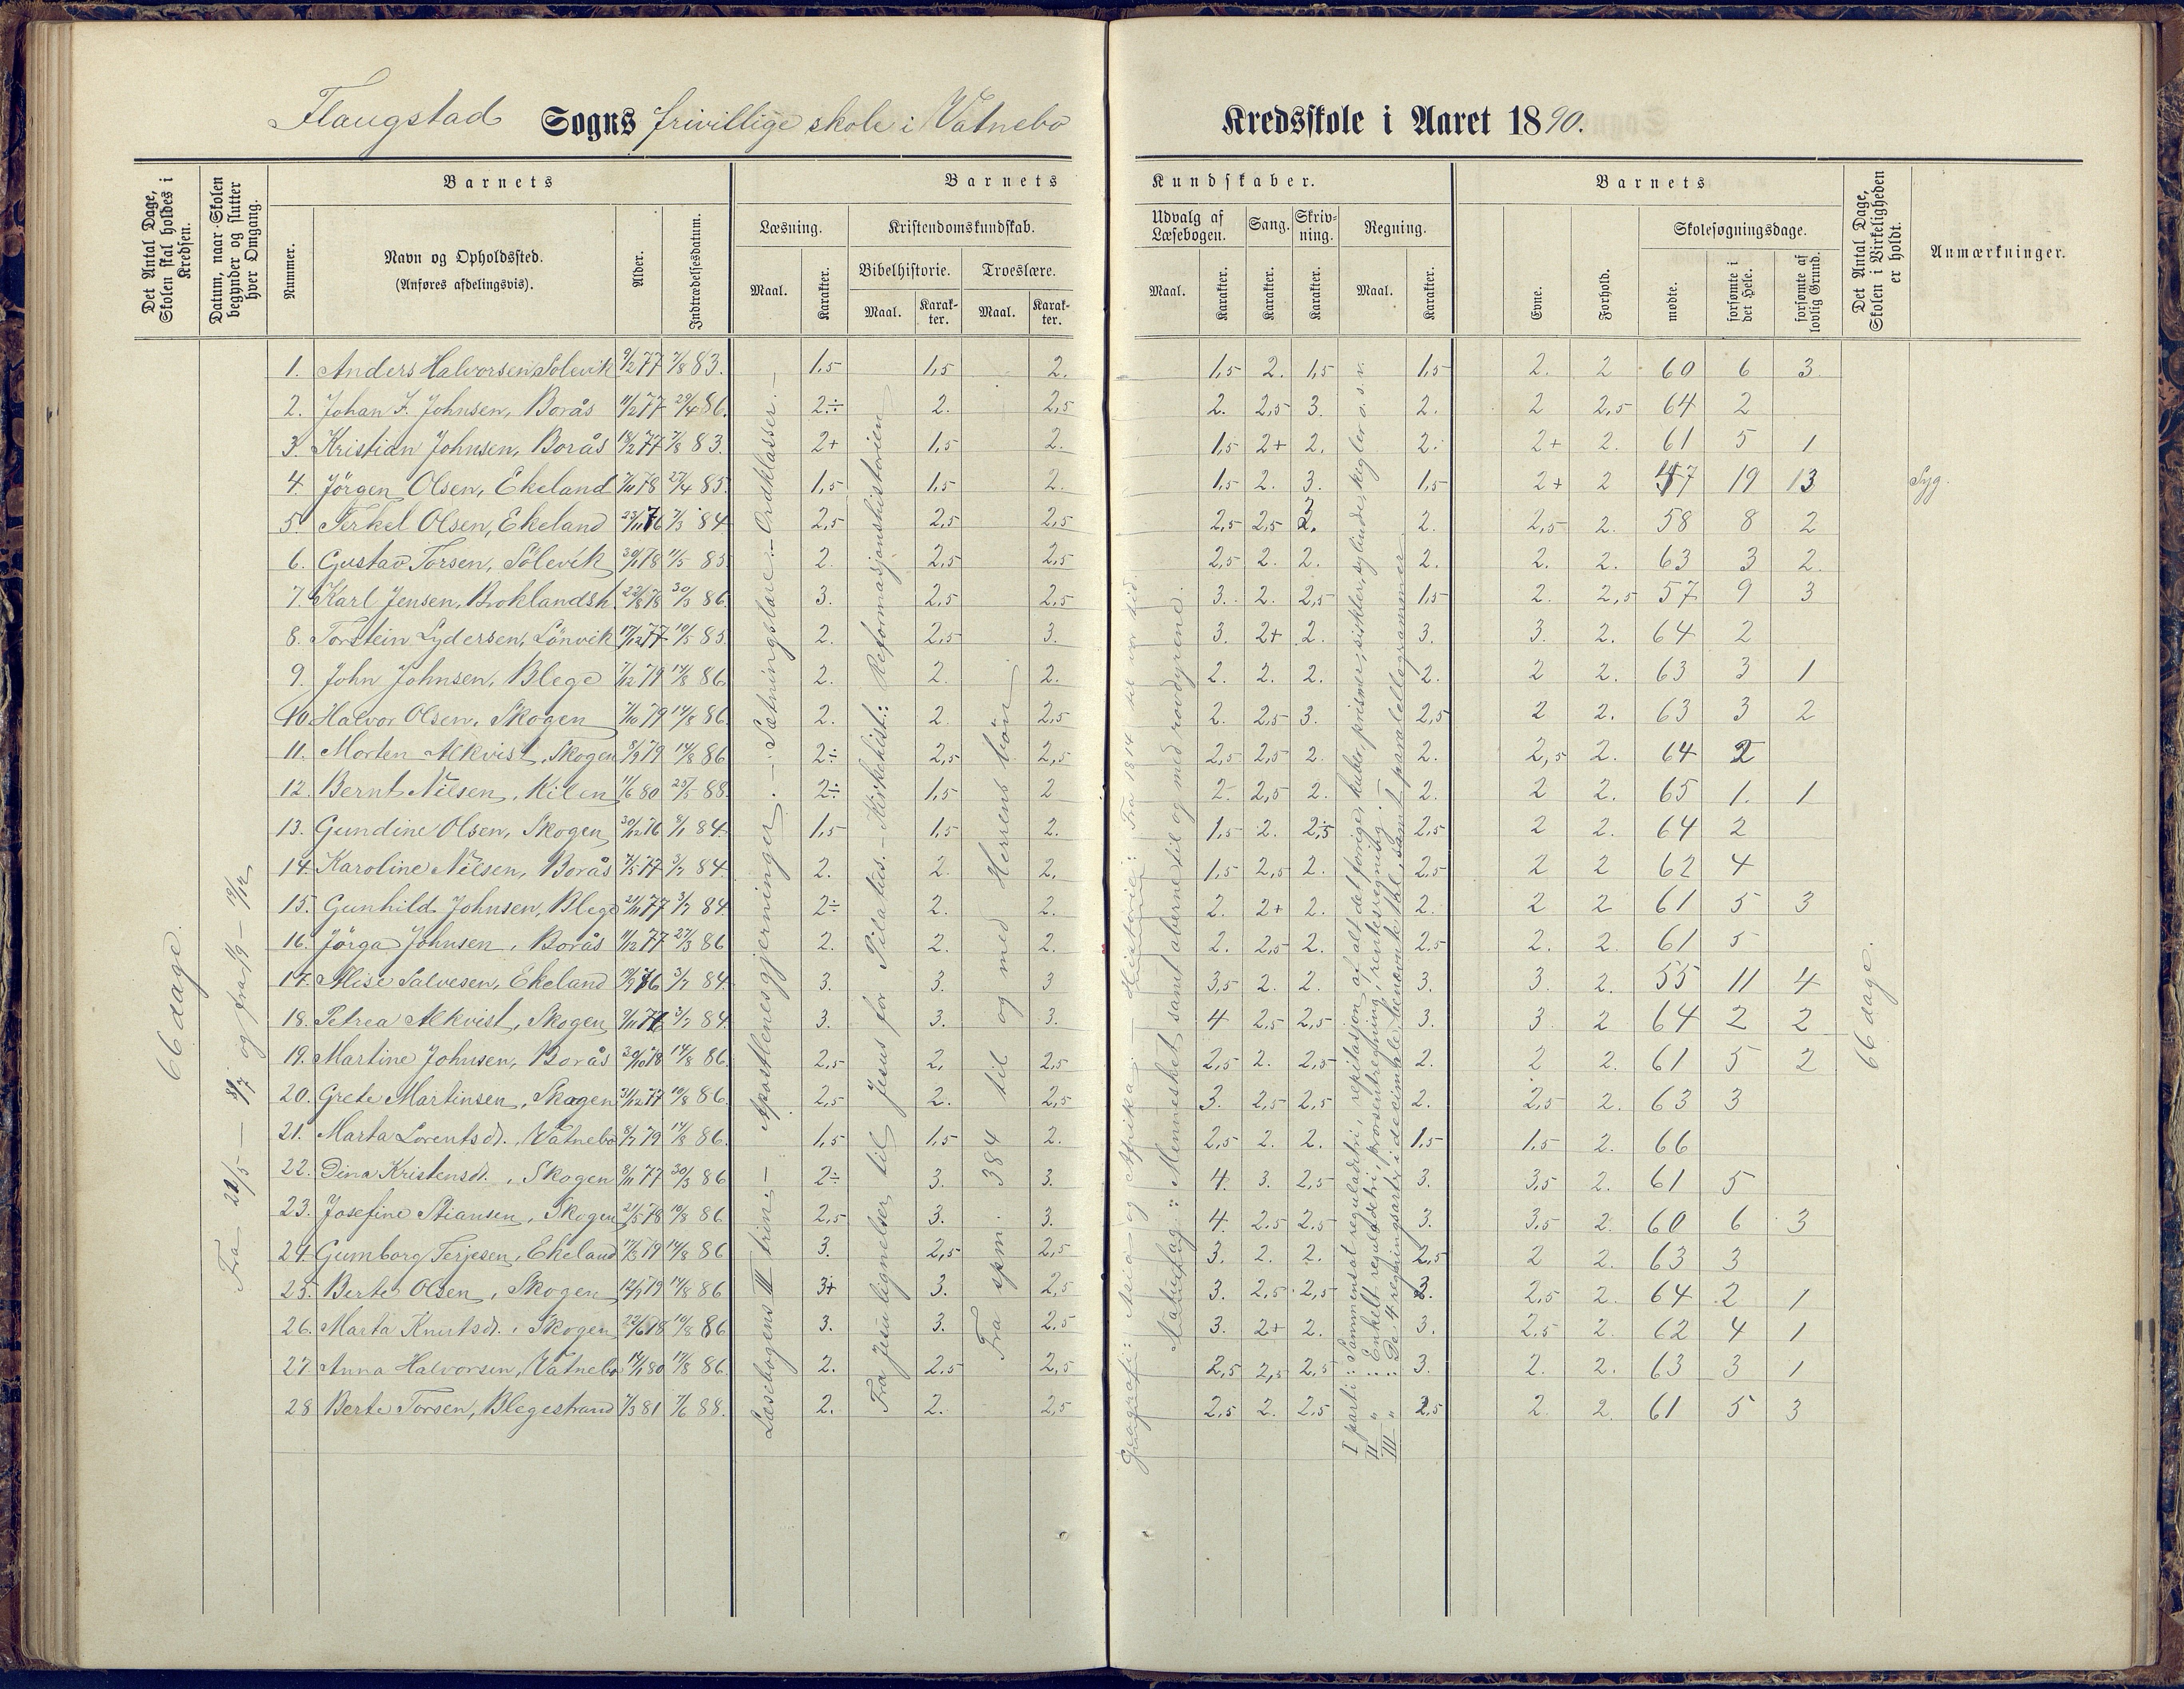 Flaugstad Sogns frivillige skole i Vatnebo Kredsskole i Aaret 1890.
Det Antal Dage, Skolen skal holdes i Kredsen.
Datum, naar Skolen begynder og slutter hver Omgang.
Barnets
Nummer.
Navn og Opholdssted.
(Anføres afdelingsvis).
Alder.
Indtrædelsesdatum.
Barnets Kundskaber.
Læsning. Maal. Karakter.
Kristendomskundskab.
Bibelhistorie. Maal. Karakter.
Troeslære. Maal. Karakter.
Udvalg af Læsebogen. Maal. Karakter.
Sang. Karakter.
Skrivning. Karakter.
Regning. Maal. Karakter.
Barnets
Evne. Forhold.
Skolesøgningsdage.
mødte. forsømte i det Hele. forsømte af lovlig Grund.
Det Antal Dage, Skolen i Virkeligheden er holdt.
Anmærkninger.
66 dage.
Fra 21/5 — 8/7 og fra 1/9 —
Læsebogens III trin. — Apostlenes gjerninger. — Sætningslære. — Ordklasser. —
Fra Jesu lignelser til Jesus for Pilatus. — Kirkehist.: Reformasjonshistorien
Fra spm. 384 til og med Herrens bøn
Geografi: Asia og Afrika. — Historie: Fra 1814 til vor tid.
Naturfag: Mennesket samt aberne til og med rovdyrene.
I parti: Sammensat reguladetri, repitasjon af alt det forrige, kuber, prismer, sirkler, sylinder, kigler o. s. v.
II " : Enkelt reguladetri, prosentregning, rentesregning.
III " : De 4 regningsarter i decimaler, benævnte tal, samt paralellogrammer
1. Anders Halvorsen Solevik 9/2 77 7/8 83. 1,5 1,5 2. 1,5 2. 1,5 1,5 2. 2 60 6 3.
2. Johan F. Johnsen, Borås 11/2 77 29/4 86. 2÷ 2. 2,5 2. 2,5 3. 2. 2 2,5 64 2
3. Kristian Johnsen, Borås 18/2 77 7/8 83. 2+ 1,5 2. 1,5 2+ 2. 2. 2+ 2. 61 5 1
4. Jörgen Olsen, Ekeland 7/11 78 27/4 85. 1,5 1,5 2. 1,5 2. 3. 1,5 2+ 2 47 19 13 Syg.
5. Terkel Olsen, Ekeland 23/11 76 7/3 84 2,5 2,5 2,5 2,5 2,5 3. 2. 2,5 2. 58 8 2
6. Gustav Torsen, Sölevik 11/5 85 2. 2,5 2,5 2,5 2. 2. 2. 2. 2. 63 3 2.
7. Karl Jensen, Broklandsh. 22/8 78 30/3 86 3. 2,5 2,5 3. 2. 2,5 1,5 2. 2,5 57 9 3
8. Torstein Lydersen, Lönvik 17/12 77 10/5 85 2. 2,5 3. 3. 2+ 2. 3. 3. 2. 64 2
9. John Johnsen, Blege 7/12 79 14/8 86. 2. 2. 2. 2. 2. 2. 2. 2 2. 63 3 1
10. Halvor Olsen, Skogen 7/10 79 14/8 86. 2. 2. 2,5 2. 2,5 3. 2,5 2 2. 63 3 2
11. Morten Alkvist, Skogen 8/9 79 14/8 86 2÷ 2,5 2,5 2,5 2,5 2. 2. 2,5 2. 64 2
12. Bernt Nilsen, Kilen 11/6 80 25/5 88. 2÷ 1,5 2 2. 2,5 2. 2. 2 2. 65 1. 1
13. Gundine Olsen, Skogen 30/12 76 8/1 84. 1,5 1,5 2. 1,5 2. 2,5 2,5 2 2. 64 2
14. Karoline Nilsen, Borås 7/5 77 3/7 84. 2. 2. 2. 1,5 2,5 2. 2,5 2 2 62 4
15. Gunhild Johnsen, Blege 21/11 77 3/7 84. 2÷ 2. 2. 2. 2+ 2. 2. 2 2 61 5 3
16. Jörga Johnsen, Borås 11/12 77 27/3 86 2. 2. 2. 2. 2,5 2. 2,5 2. 2. 61 5
17. Alise Salvesen, Ekeland 3/7 84. 3. 3. 3 3,5 2. 2. 3. 3. 2. 55 11 4
18. Petrea Alkvist, Skogen 3/7 84. 3. 3. 3. 4 2,5 2,5 3. 3. 2 64 2 2
19. Martine Johnsen, Borås 30/10 78 14/8 86. 2,5 2. 2,5 2,5 2. 2,5 2. 2 2. 61 5 2
20. Grete Martinsen, Skogen 31/12 77 10/8 86. 2,5 2. 2,5 3. 2,5 2,5 2. 2,5 2. 63 3
21. Marta Lorentsd., Vatnebo 8/7 79 14/8 86. 1,5 1,5 2. 2,5 2. 2. 1,5 1,5 2. 66
22. Dina Kristensd., Skogen 8/11 77 30/3 86 2÷ 3. 3. 4. 3. 2,5 3. 3,5 2. 61 5
23. Josefine Stiansen, Skogen 21/5 78 10/8 86 2,5 3. 3. 4. 2,5 2,5 3. 3,5 2. 60 6 3
24. Gumborg Terjesen, Ekeland 14/8 86 3. 2,5 2,5 3. 2. 2. 2,5 2 2. 63 3
25. Berte Olsen, Skogen 12/9 79 14/8 86 3+ 3. 2,5 3. 2,5 2,5 3. 2,5 2. 64 2 1
26. Marta Knutsd., Skogen 22/6 78 10/8 86 3. 3. 2,5 3. 2+ 2. 3. 2,5 2. 62 4 1
27. Anna Halvorsen, Vatnebo 14/8 86. 2. 2,5 2,5 2,5 2,5 2,5 3. 2. 2. 63 3 1
28 Berte Torsen, Blegestrand 7/3 81 7/6 88. 2. 2. 2,5 2,5 2. 2,5 2,5 2. 2. 61 5 3
66 dage.